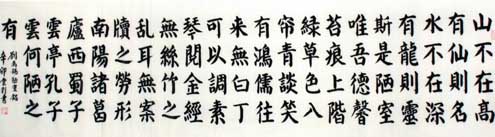 山不在高
有仙則名
水不在深
有龍則靈
斯是陋室
唯吾德馨
苔痕上階
綠草色入
帘青談笑
有鴻儒往
來無白丁
可以調素
琴閱金經
無絲竹之
亂耳無案
牘之勞形
南陽諸葛
廬西蜀子
雲亭孔子
雲何陋之
有
劉禹錫陋室銘
辛卯書